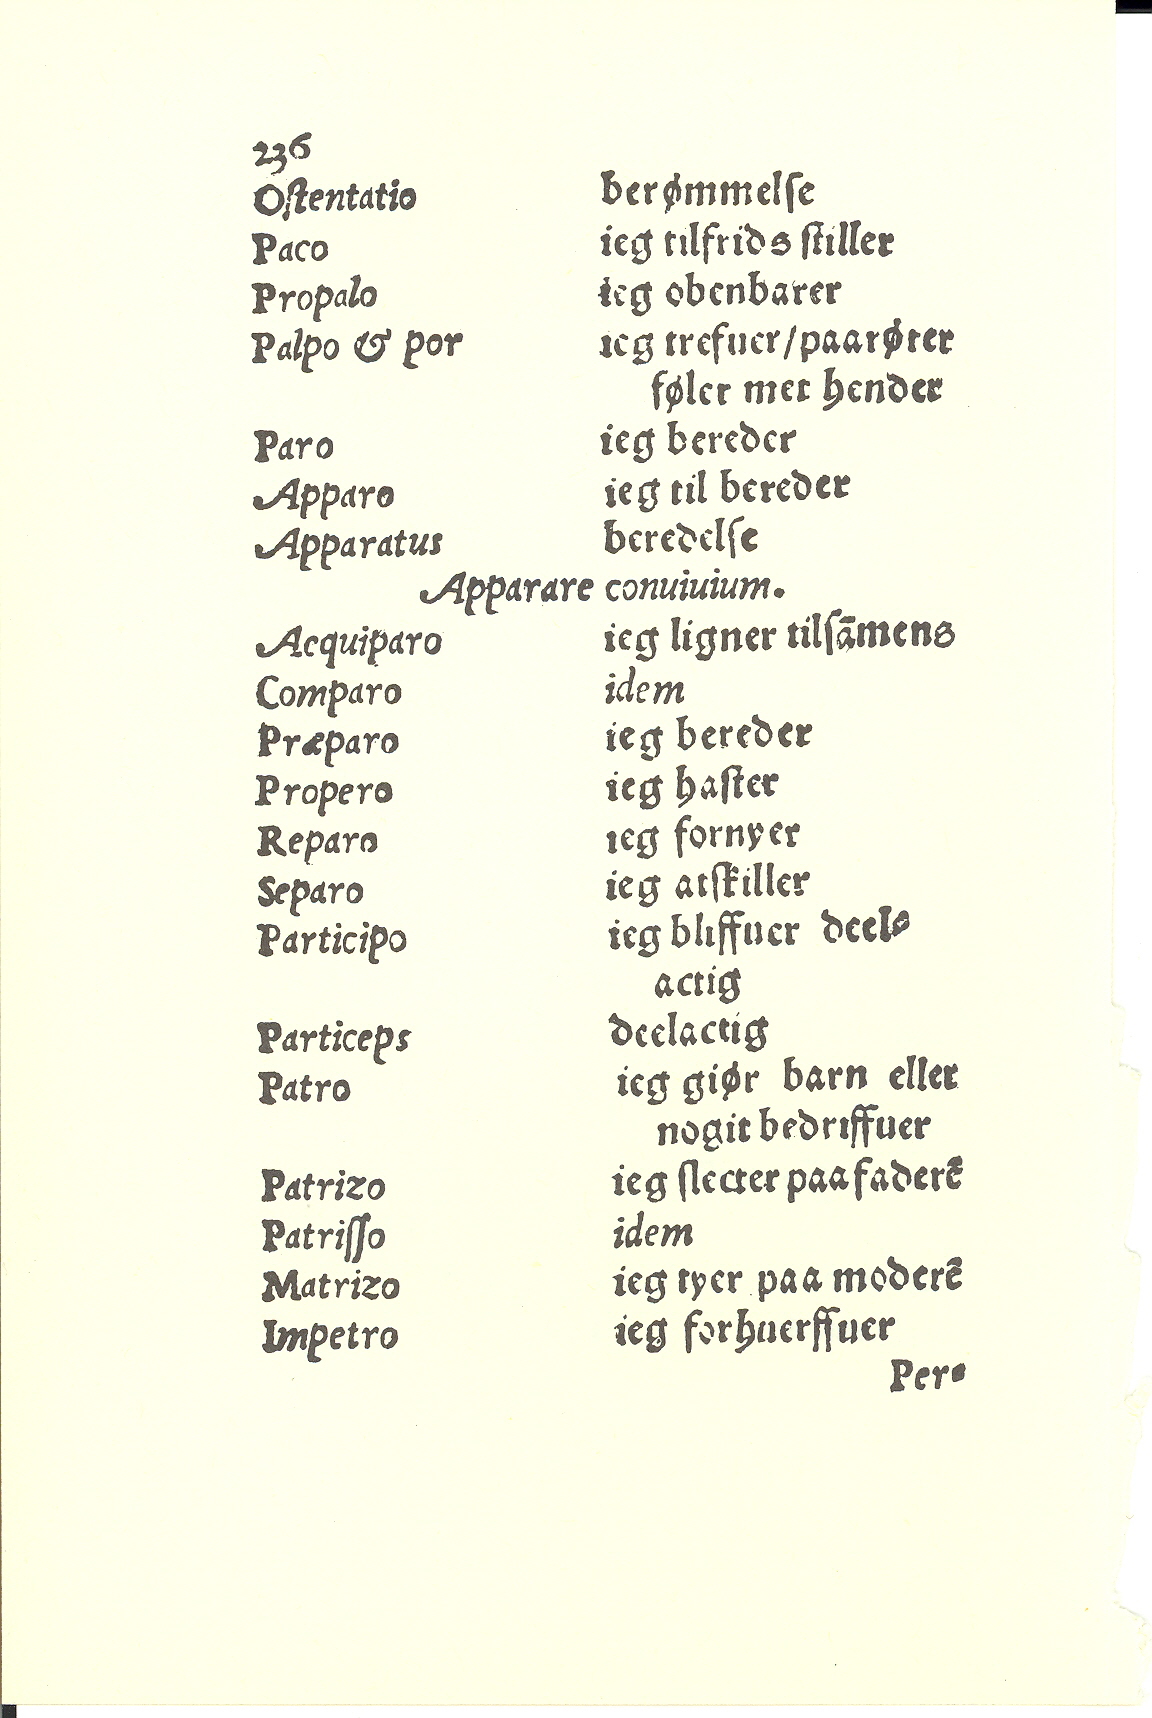 236
Ostentatio berømmelse
Paco ieg tilfrids stiller
Propalo ieg obenbarer
Palpo & por ieg trefuer/paarører
føler met hender
Paro ieg bereder
Apparo ieg til bereder
Apparatus beredelse
Apparare conuiuium.
Aequiparo ieg ligner tilsāmens
Comparo idem
Præparo ieg bereder
Propero ieg haster
Reparo ieg fornyer
Separo ieg atskiller
Participo ieg bliffuer deel-
actig
Particeps deelactig
Patro ieg giør barn eller
nogit bedriffuer
Patrizo ieg slecter paa faderē
Patrisso idem
Matrizo ieg tyer paa moderē
Impetro ieg forhuerffuer
Per-